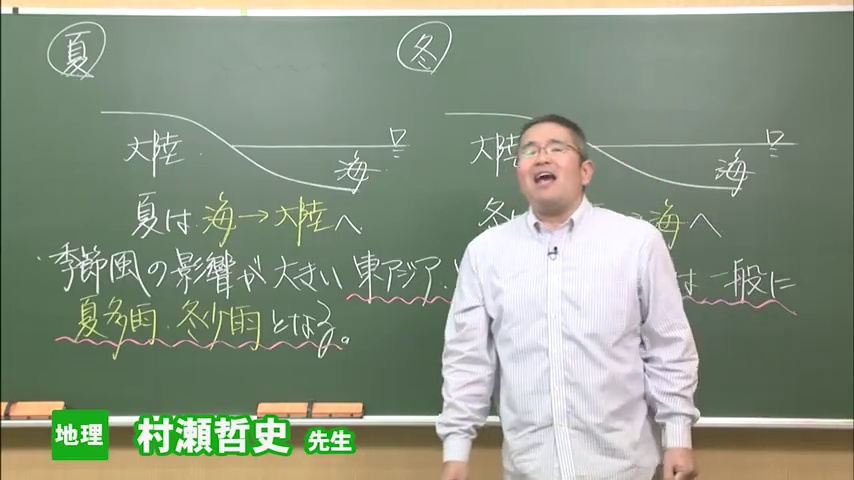 夏
冬
大陸
海
大陸
海
夏は 海→大陸へ
冬 →海へ
季節風の影響が大きい 東アジア は一般に
夏多雨・冬少雨となる。
地理 村瀬哲史 先生